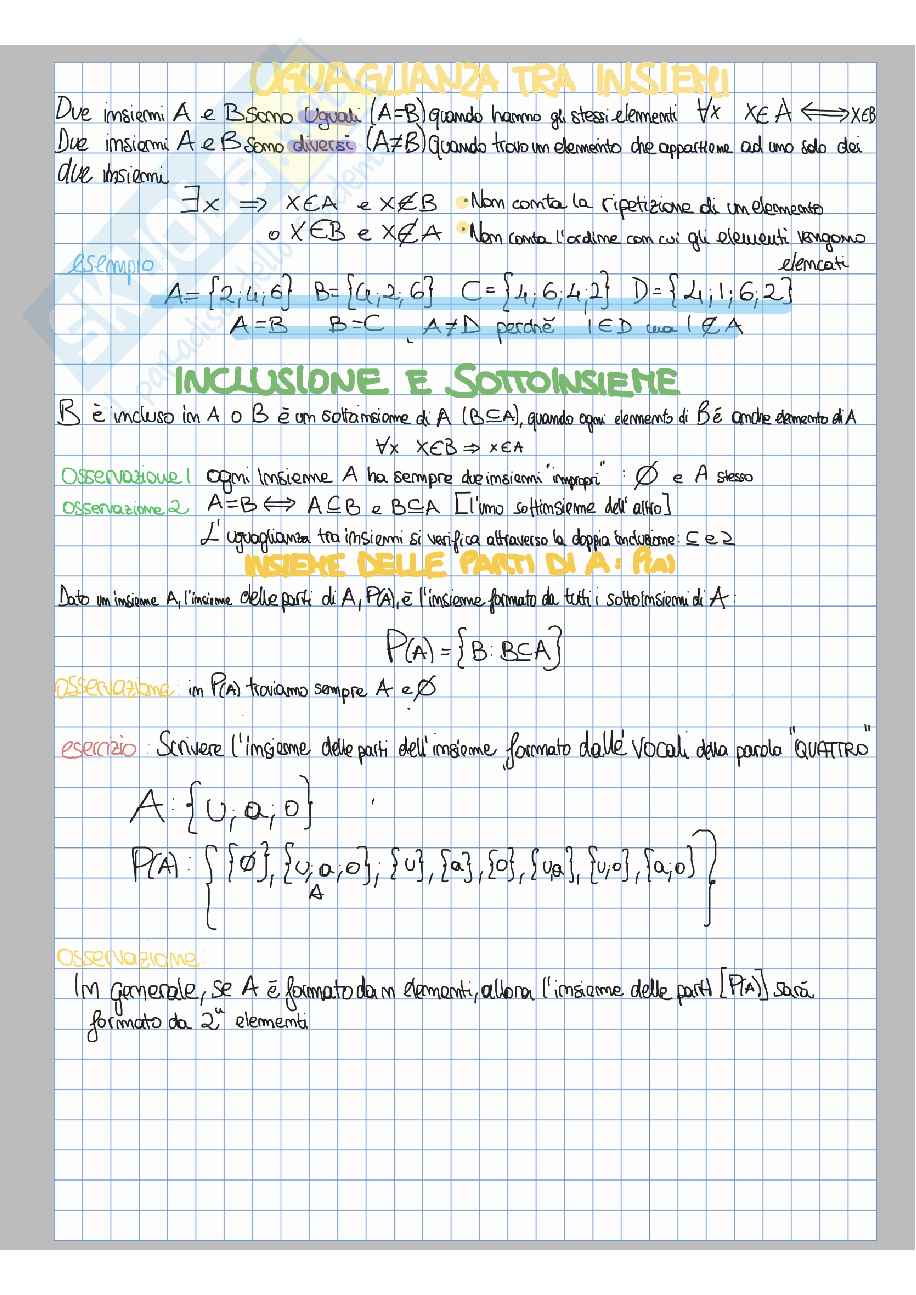 UGUAGLIANZA TRA INSIEMI
Due insiemi A e B sono uguali (A=B) quando hanno gli stessi elementi ∀x x∈A ⟺ x∈B
Due insiemi A e B sono diversi (A≠B) quando trovo un elemento che appartiene ad uno solo dei
due insiemi
∃x ⇒ x∈A e x∉B • Non conta la ripetizione di un elemento
o x∈B e x∉A • Non conta l'ordine con cui gli elementi vengono
elencati
esempio
A={2;4;6} B={4,2,6} C={4;6;4;2} D={4;1;6;2}
A=B B=C A≠D perché 1∈D ma 1∉A
INCLUSIONE E SOTTOINSIEME
B è incluso in A o B è un sottoinsieme di A (B⊆A), quando ogni elemento di B è anche elemento di A
∀x x∈B ⇒ x∈A
Osservazione 1 ogni insieme A ha sempre due insiemi "impropri" : ∅ e A stesso
Osservazione 2 A=B ⟺ A⊆B e B⊆A [l'uno sottinsieme dell'altro]
L'uguaglianza tra insiemi si verifica attraverso la doppia inclusione: ⊆ e ⊇
INSIEME DELLE PARTI DI A: P(A)
Dato un insieme A, l'insieme delle parti di A, P(A), è l'insieme formato da tutti i sottoinsiemi di A:
P(A)={B: B⊆A}
Osservazione: in P(A) troviamo sempre A e ∅
esercizio: Scrivere l'insieme delle parti dell'insieme formato dalle vocali della parola "QUATTRO"
A:{u;a;o}
P(A): {{∅},{u;a;o};{u},{a},{o},{u,a},{u;o},{a;o}}
A
Osservazione:
In generale, se A è formato da n elementi, allora l'insieme delle parti [P(A)] sarà
formato da 2ⁿ elementi